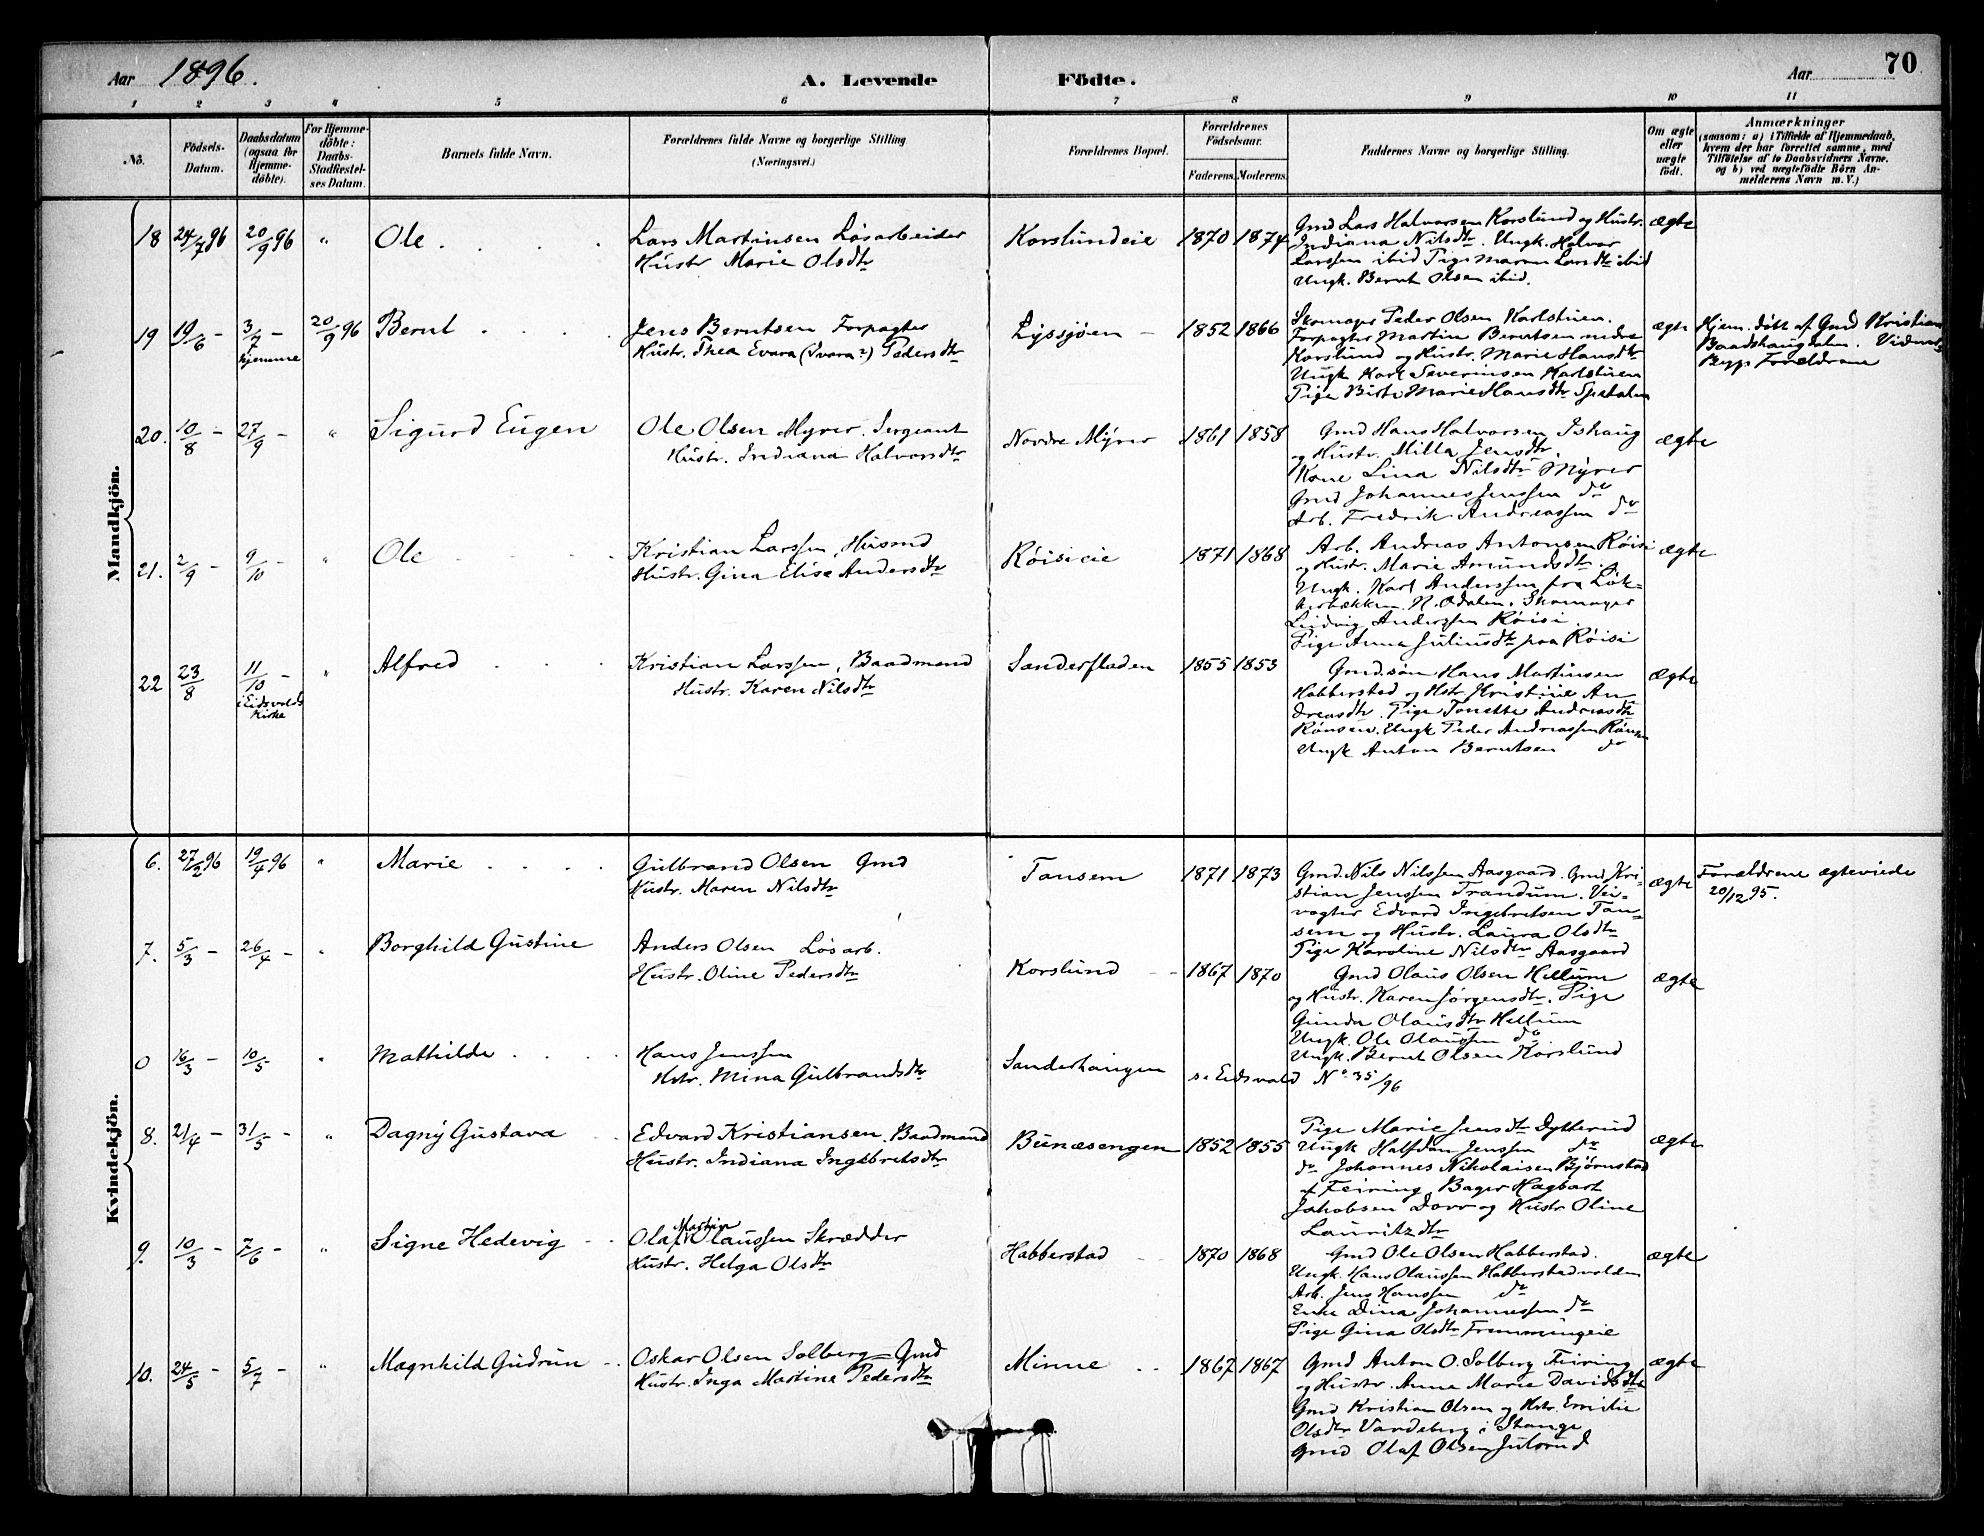 Aar 1896. A. Levende Fødte. Aar 70
1 2 3 4 5 6 7 8 9 10 11
No. Födsels-Datum. Daabsdatum (ogsaa for Hjemmedöbte). For Hjemmedöbte: Daabs-Stadfæstelses Datum. Barnets fulde Navn. Forældrenes fulde Navne og borgerlige Stilling (Næringsvei.) Forældrenes Bopæl. Forældrenes Födselsaar. Faderens. Moderens. Faddernes Navne og borgerlige Stilling. Om ægte eller uægte födt. Anmærkninger (saasom: a) i Tilfælde af Hjemmedaab, hvem der har forrettet samme, med Tilföielse af to Daabsvidners Navne. og b) ved uægtefödte Börn Anmelderens Navn m.V.)
Mandkjön.
18 24/7 96 20/9 96 " Ole Lars Martinsen Løsarbeider Korslundeie 1870 1874 Gmd Lars Halvorsen Korslund og Hustr. ægte
Hustr Marie Olsdtr Indiana Nilsdtr. Ungk. Halvor
Larssen ibid Pige Maren Larsdtr ibid
Ungk. Bernt Olsen ibid.
19 19/6 - 3/7 - hjemme 20/9 96 Bernt Jens Berntsen Forpagter Lyssjøen - 1852 1866 Skomager Peder Olsen Karlstuen. ægte Hjem. døbt af Gmd Kristian
Hustr. Thea Evara (Ivara?) Pedersdtr Forpagter Martin Berntsen nedre Baadshaugdalen. Vidner
Korslund og Hustr. Marie Hansdtr Begge Forældrene
Ungk Karl Severinsen Karlstuen
Pige Birte Marie Hansdtr Spetalen
20. 10/8 - 27/9 - " Sigurd Eugen Ole Olsen Myrer. Sergeant Nordre Myrer 1861 1858 Gmd Hans Halvorsen Ishaug ægte
Hustr. Indiana Halvorsdtr og Hustr. Milla Jensdtr.
Kone Lina Nilsdtr Myrer
Gmd Johannes Jenssen do
Arb. Fredrik Andreassen do
21. 2/9 - 9/10 - " Ole Kristian Larssen, Husmd Røisieie 1871 1868 Arb. Andreas Antonsen Røisi ægte
Hustr. Gina Elise Andersdtr og Hustr. Marie Amundsdtr.
Ungk. Karl Anderssen fra Løk-
kerbækken N. Odalen. Skomager
Ludvig Anderssen Røisi.
Pige Anna Juliusdtr paa Røisi
22 23/8 11/10 - i Eidsvolds Kirke " Alfred Kristian Larssen, Baadmand Sanderfladen 1855 1853 Gmd.søn Hans Martinsen ægte
Hustr. Karen Nilsdtr Habberstad og Hstr. Kristine An
dreasdtr. Pige Tonette Andreasdtr
Rønsen. Ungk Peder Andreassen Rønsen
Ungk Anton Berntsen do
Kvindekjön.
6. 27/2 96 19/4 96 " Marie Gulbrand Olsen Gmd Tonsem 1871 1873 Gmd. Nils Nilssen Aasgaard. Gmd Kri- ægte Forældrene ægteviede
Hustr. Maren Nilsdtr stian Jenssen Trandum. Vei- 20/12 95.
vogter Edvard Ingebretsen Ton-
sem og Hustr. Laura Olsdtr
Pige Karoline Nilsdtr Aasgaard
7. 5/3 - 26/4 - " Borghild Gustine Anders Olsen Løsarb. Korslund 1867 1870 Gmd Olaus Olsen Hellum ægte
Hustr. Oline Pedersdtr og Hustr. Karen Jørgensdtr. Pige
Gunda Olausdtr Hellum
Ungk. Ole Olaussen do
Ungk. Bernt Olsen Korslund
0 16/3 - 10/5 " Mathilde Hans Jenssen Sanderhaugen se Eidsvold No 35/96
Hstr. Mina Gulbrandsdtr
8. 21/4 - 31/5 - " Dagny Gustava Edvard Kristiansen. Baadmand Bunæsengen 1852 1855 Pige Marie Jensdtr Dytterud ægte
Hustr. Indiana Ingebretsdtr Ungk Halfdan Jenssen do
do Johannes Nikolaisen Bjørnstad
af Feiring Bager Hagbart
Jakobsen Dorr og Hustr Oline
Lauritzdtr
9. 10/3 - 7/6 - " Signe Hedevig Olaf Martin Olaussen Skrædder Habberstad - 1870 1868 Gmd Ole Olsen Habberstad. ægte
Hustr. Helga Olsdtr Ungk. Hans Olaussen Habberstadvolden
Arb. Jens Hanssen do
Enke Dina Johannessen do
Pige Gina Olsdtr Fremmingeie
10. 24/5 - 5/7 - " Magnhild Gudrun Oskar Olsen Solberg - Gmd Minne 1867 1867 Gmd Anton O. Solberg Feiring ægte
Hustr. Inga Martina Pedersdtr og Hustr. Anna Marie Davidsdtr
Gmd Kristian Olsen og Hstr. Emilie
Olsdtr Vandeberg i Stange
Gmd Olaf Olsen Julsrud